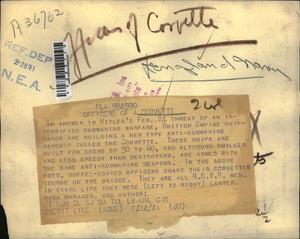 A36762
Officers of Corvette
REF. DEP
N.E.A.
England Navy
FLA 594590
OFFICERS OF A CORVETTE
IN ANSWER TO HITLER'S FEB. 24 THREAT OF AN IN-
TENSIFIED SUBMARINE WARFARE, BRITISH EMPIRE SHIP-
YARDS ARE BUILDING A NEW TYPE ANTI-SUBMARINE
WARSHIP CALLED THE CORVETTE. THESE SHIPS ARE
BUILT FOR CREWS OF 50 TO 60, AND THOUGH SMALLER
AND LESS SPEEDY THAN DESTROYERS, ARE ARMED WITH
THE SAME ANTI-SUBMARINE WEAPONS. IN THE ABOVE
DUFFEL-COATED OFFICERS CHART THEIR CORVETTE'S
COURSE ON THE BRIDGE. THEY ARE ALL R.N.V.R. MEN.
IN CIVIL LIFE THEY WERE (LEFT TO RIGHT) LAWYER,
BANK MANAGER, AND AUTHOR.
CREDIT LINE (ACME) 2/24/41 (JM)
2 col